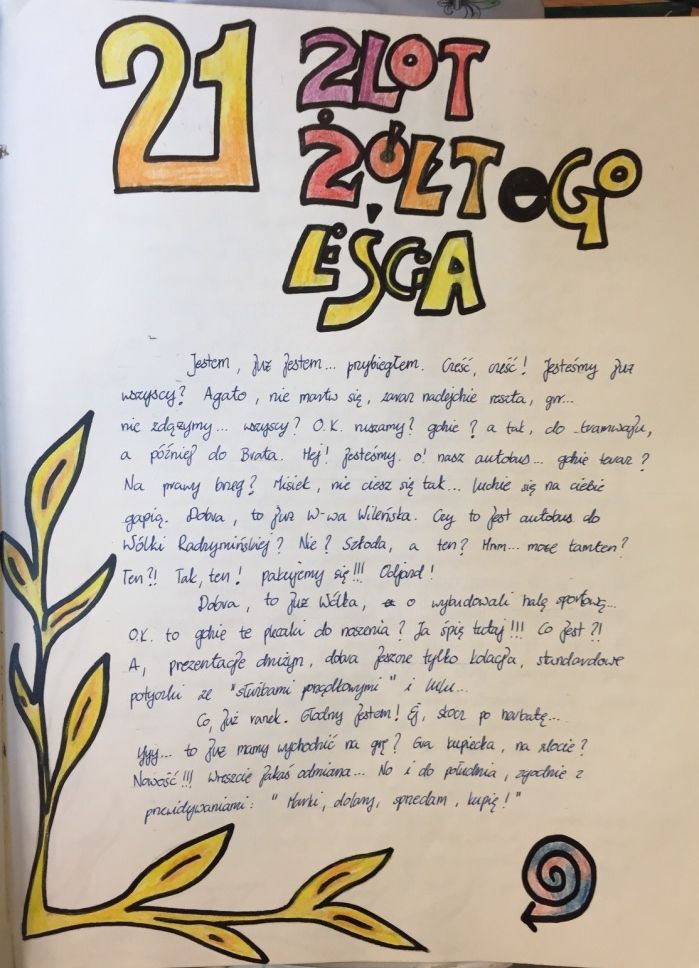 21 ZLOT
ŻÓŁTEGO
LIŚCIA
Jestem, już jestem... przybiegłem. Cześć, cześć! Jesteśmy już
wszyscy? Agato, nie martw się, zaraz nadejdzie reszta, grr...
nie zdążymy... wszyscy? O.K. ruszamy? gdzie? a tak, do tramwaju,
a później do Brata. Hej! Jesteśmy. o! nasz autobus... gdzie teraz?
Na prawy brzeg? Misiek, nie ciesz się tak... ludzie się na ciebie
gapią. Dobra, to już W-wa Wileńska. Czy to jest autobus do
Wólki Radzymińskiej? Nie? Szkoda, a ten? Hmm... może tamten?
Ten?! Tak, ten! pakujemy się!!! Odjazd!
Dobra, to już Wólka, o wybudowali halę sportową...
O.K. to gdzie te plecaki do noszenia? Ja śpię tutaj!!! Co jest?!
A, prezentacje drużyn, dobra jeszcze tylko kolacja, standardowe
potyczki ze "służbami porządkowymi" i lulu...
Co, już ranek. Głodny jestem! Ej, skocz po herbatę...
Yyyy... to już mamy wychodzić na grę? Gra kupiecka, na zlocie?
Nowość!!! Wreszcie jakaś odmiana... No i do południa, zgodnie z
przewidywaniami: "Marki, dolary, sprzedam, kupię!"